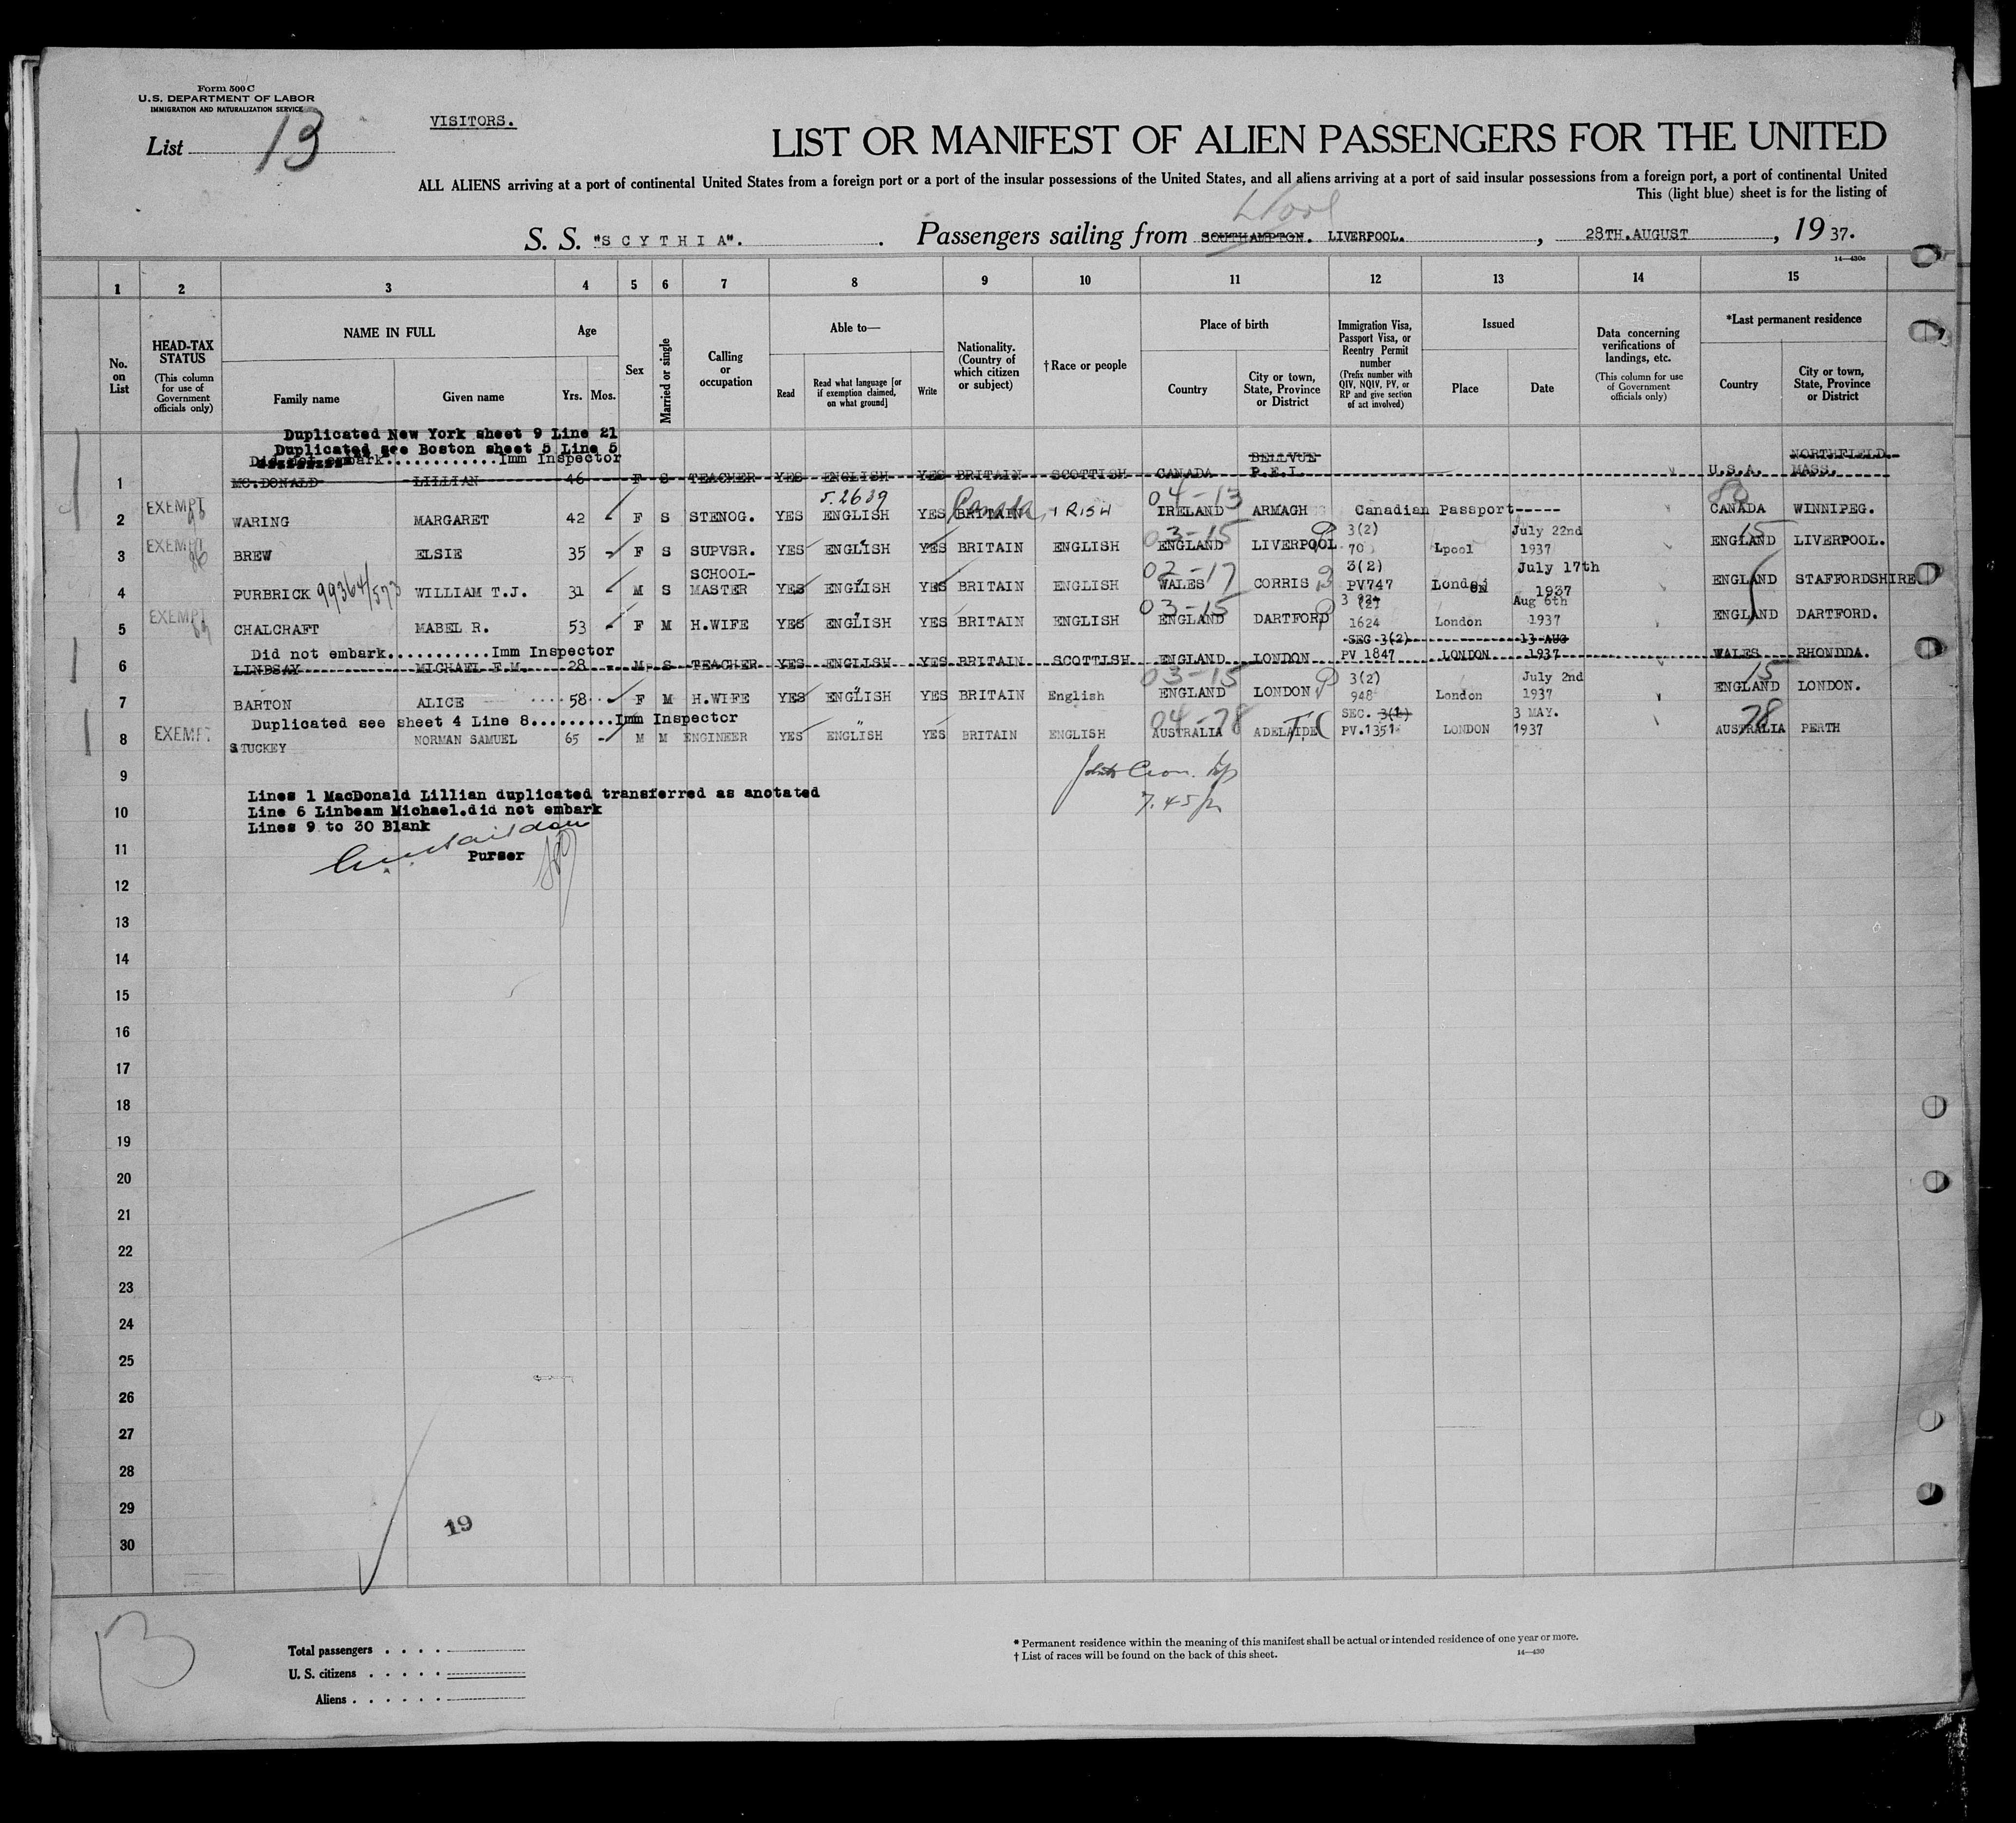 Form 500 C
U.S. DEPARTMENT OF LABOR
IMMIGRATION AND NATURALIZATION SERVICE
List 13
VISITORS.
LIST OR MANIFEST OF ALIEN PASSENGERS FOR THE UNITED
ALL ALIENS arriving at a port of continental United States from a foreign port or a port of the insular possessions of the United States, and all aliens arriving at a port of said insular possessions from a foreign port, a port of continental United
This (light blue) sheet is for the listing of
L'pool
S. S. "SCYTHIA". Passengers sailing from SOUTHAMPTON. LIVERPOOL. , 28TH.AUGUST , 19 37.
14—430a
1 2 3 4 5 6 7 8 9 10 11 12 13 14 15
No. on List
HEAD-TAX STATUS
(This column for use of Government officials only)
NAME IN FULL
Family name
Given name
Age
Yrs.
Mos.
Sex
Married or single
Calling or occupation
Able to—
Read
Read what language [or if exemption claimed, on what ground]
Write
Nationality. (Country of which citizen or subject)
†Race or people
Place of birth
Country
City or town, State, Province or District
Immigration Visa, Passport Visa, or Reentry Permit number
(Prefix number with QIV, NQIV, PV, or RP and give section of act involved)
Issued
Place
Date
Data concerning verifications of landings, etc.
(This column for use of Government officials only)
*Last permanent residence
Country
City or town, State, Province or District
Duplicated New York sheet 9 Line 21
Duplicated see Boston sheet 5 Line 5
Did not embark............Imm Inspector
1 MC.DONALD LILLIAN 46 F S TEACHER YES ENGLISH YES BRITAIN SCOTTISH CANADA BELLVUE P.E.I. U.S.A. NORTHFIELD. MASS.
5.2639 Canada 04-13
2 EXEMPT WARING MARGARET 42 F S STENOG. YES ENGLISH YES BRITAIN IRISH IRELAND ARMAGH Canadian Passport----- CANADA WINNIPEG.
03-15 3(2) July 22nd 15
3 EXEMPT BREW ELSIE 35 F S SUPVSR. YES ENGLISH YES BRITAIN ENGLISH ENGLAND LIVERPOOL 70 Lpool 1937 ENGLAND LIVERPOOL.
SCHOOL- 02-17 3(2) July 17th
4 PURBRICK 99364/573 WILLIAM T.J. 31 M S MASTER YES ENGLISH YES BRITAIN ENGLISH WALES CORRIS PV747 London 1937 ENGLAND STAFFORDSHIRE
03-15 3 (2) Aug 6th
5 EXEMPT CHALCRAFT MABEL R. 53 F M H.WIFE YES ENGLISH YES BRITAIN ENGLISH ENGLAND DARTFORD 1624 London 1937 ENGLAND DARTFORD.
Did not embark...........Imm Inspector SEC 3(2) 13 AUG
6 LINDSAY MICHAEL F.M. 28 M S TEACHER YES ENGLISH YES BRITAIN SCOTTISH ENGLAND LONDON PV 1847 LONDON 1937 WALES RHONDDA.
03-15 3(2) July 2nd 15
7 BARTON ALICE 58 F M H.WIFE YES ENGLISH YES BRITAIN English ENGLAND LONDON 948 London 1937 ENGLAND LONDON.
Duplicated see sheet 4 Line 8.........Imm Inspector 04-78 SEC. 3(1) 3 MAY. 78
8 EXEMPT STUCKEY NORMAN SAMUEL 65 M M ENGINEER YES ENGLISH YES BRITAIN ENGLISH AUSTRALIA ADELAIDE PV.1351 LONDON 1937 AUSTRALIA PERTH
9
Lines 1 MacDonald Lillian duplicated transferred as anotated
7.45
10 Line 6 Linbeam Michael.did not embark
Lines 9 to 30 Blank
11 Purser
12
13
14
15
16
17
18
19
20
21
22
23
24
25
26
27
28
29
19
30
13
Total passengers . . . .
U. S. citizens . . . . .
Aliens . . . . . .
* Permanent residence within the meaning of this manifest shall be actual or intended residence of one year or more.
† List of races will be found on the back of this sheet.
14—430